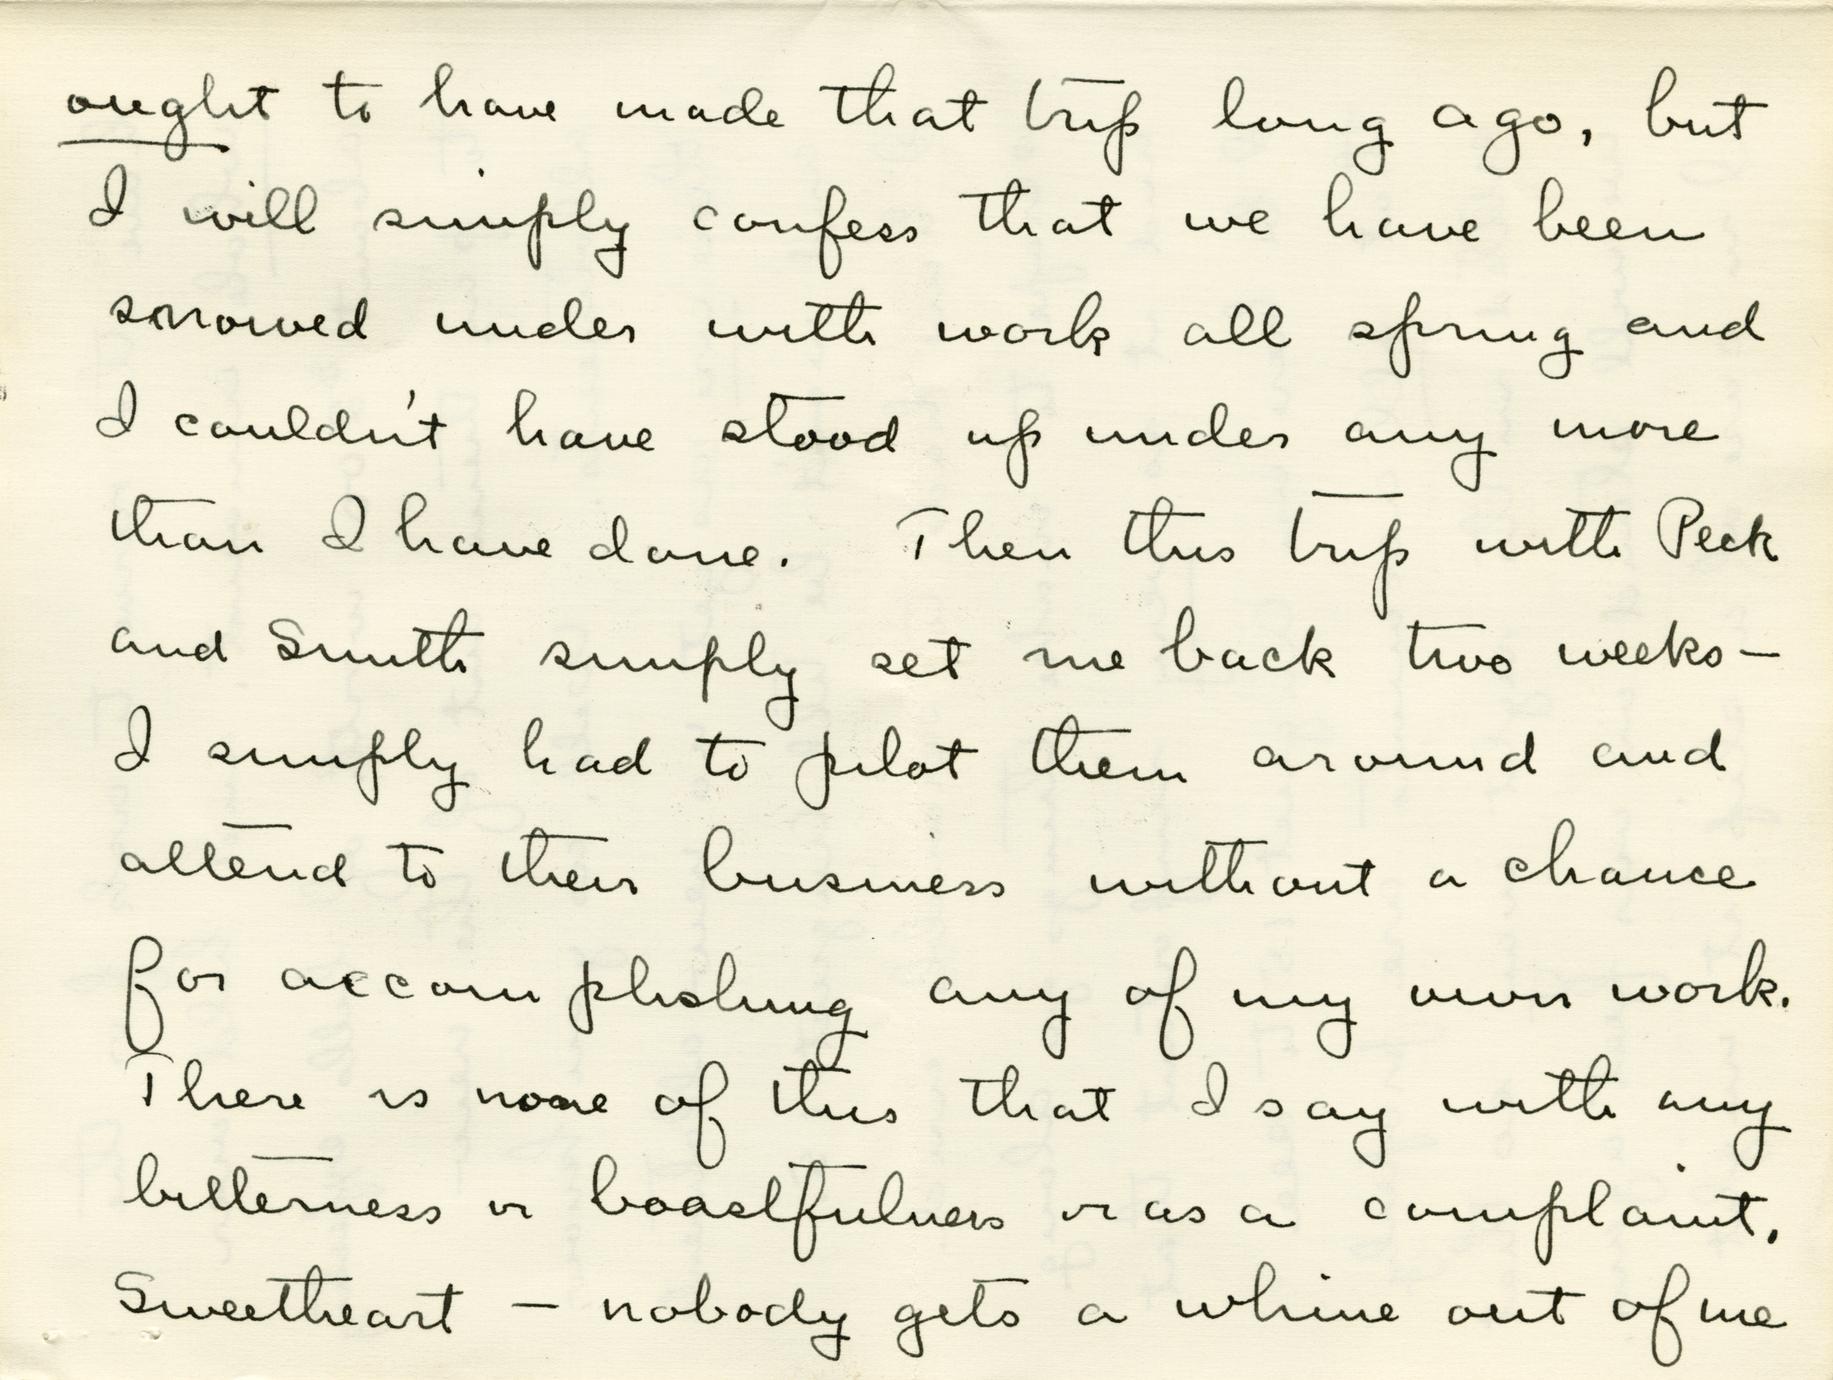 ought to have made that trip long ago, but
I will simply confess that we have been
snowed under with work all spring and
I couldn't have stood up under any more
than I have done. Then this trip with Peck
and Smith simply set me back two weeks—
I simply had to pilot them around and
attend to their business without a chance
for accomplishing any of my own work.
There is none of this that I say with any
bitterness or boastfulness or as a complaint,
Sweetheart — nobody gets a whine out of me